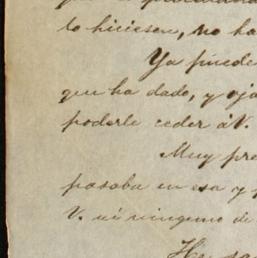 lo hiciesen, no ha
Ya puede
que ha dado, y oja
poderle ceder á V.
Muy pro
pasaba en esa y
V. ni ninguno de